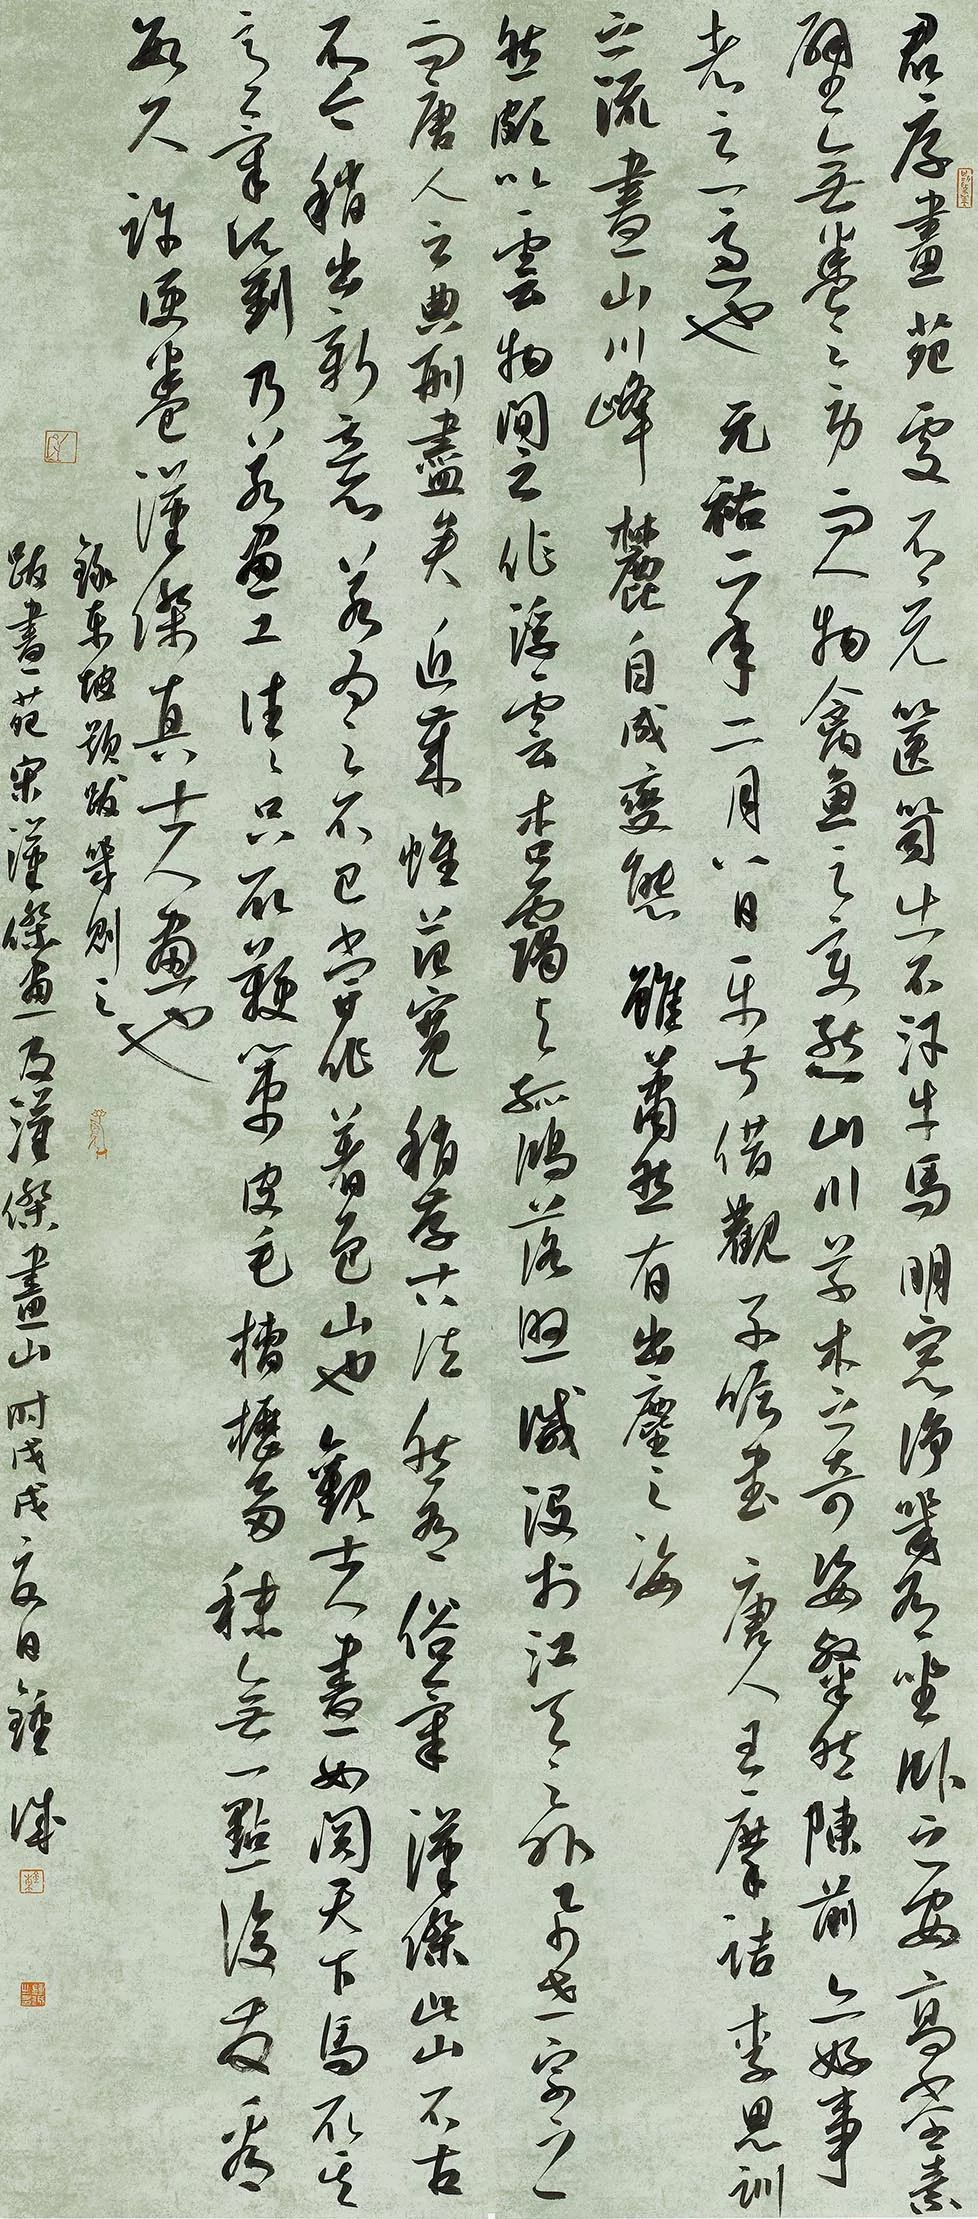 君厚畫苑處不充篋笥出不汗牛馬明窓淨几有坐卧之安高堂素
壁無舒卷之勞而人物禽魚之變態山川草木之奇姿粲然陳前亦好事
者之一適也元祐二年二月八日平叔借觀子瞻書唐人王摩詰李思訓
之流畫山川峰麓自成變態雖蕭然有出塵之姿
然頗以雲物間之作浮雲杳靄與孤鴻落照滅沒於江天之外舉世宗之
而唐人之典刑盡矣近歲惟范寬稍存古法然有俗氣漢傑此山不古
不今稍出新意若為之不已當作著色山也觀士人畫如閱天下馬取其
意氣所到乃若畫工往往只取鞭策皮毛槽櫪芻秣無一點俊發看
數尺許便卷漢傑真士人畫也
錄東坡題跋幾則之
跋畫苑宋漢傑畫及漢傑畫山時戊戌夏日鍾